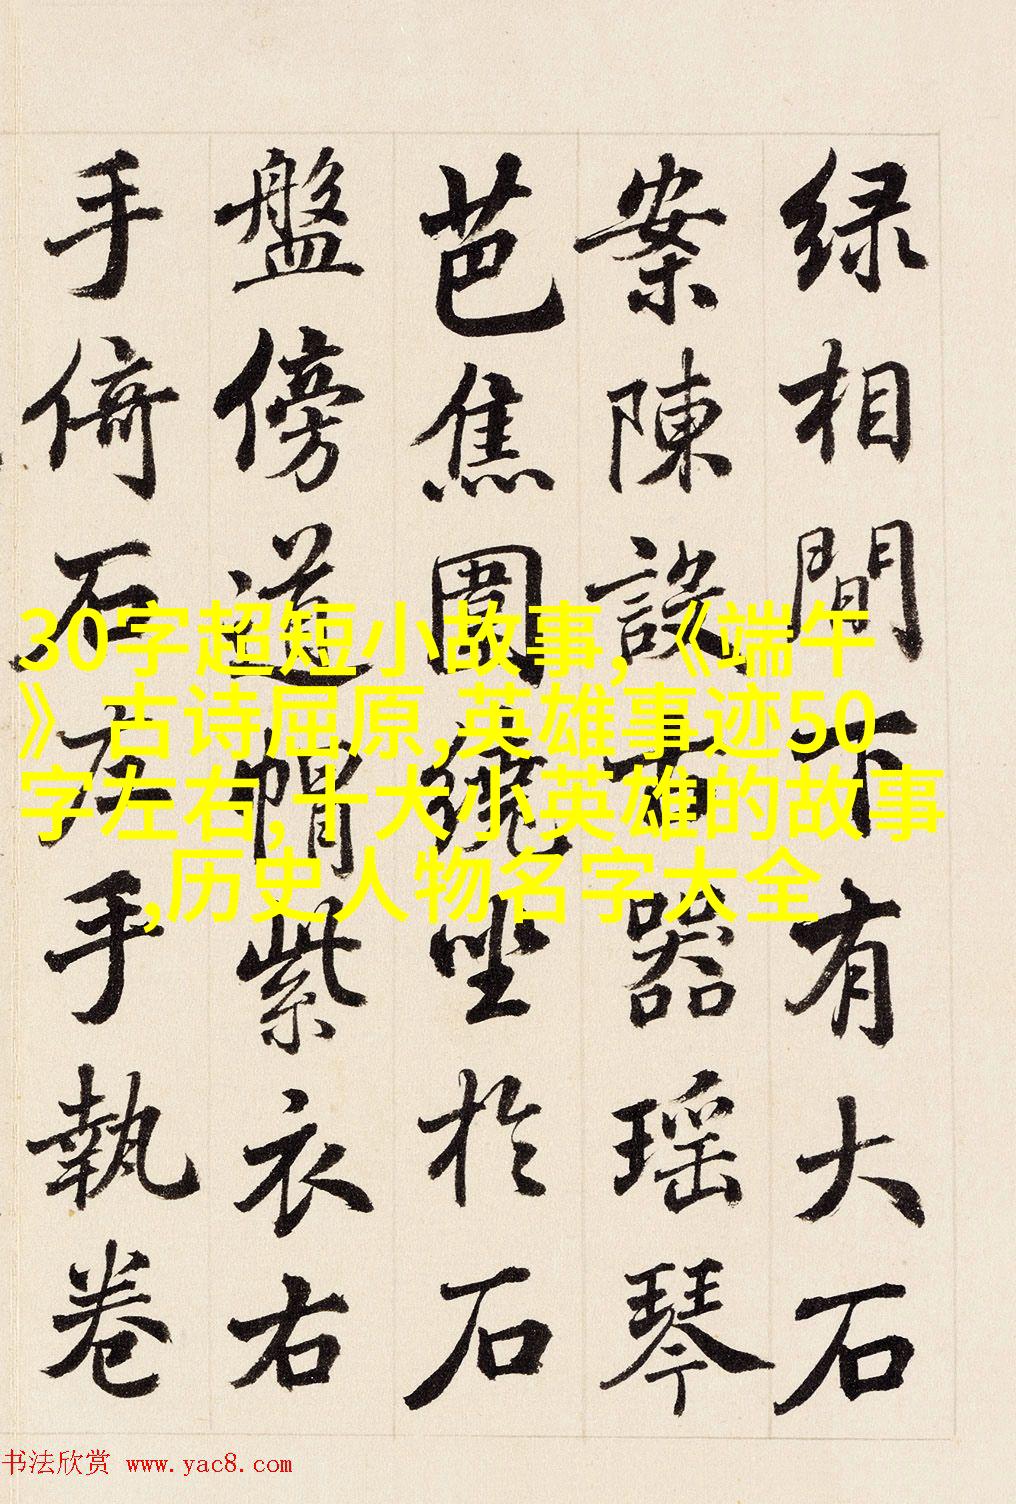 绿相間下有大石
案陳設古器瑶琴
芭焦圍繞坐於石
盤傍道帽紫衣右
手倚石左手執卷
30字超短小故事,《端午
》古诗屈原,英雄事迹50
字左右,十大小英雄的故事
,历史人物名字大全
书法欣赏 www.yac8.com